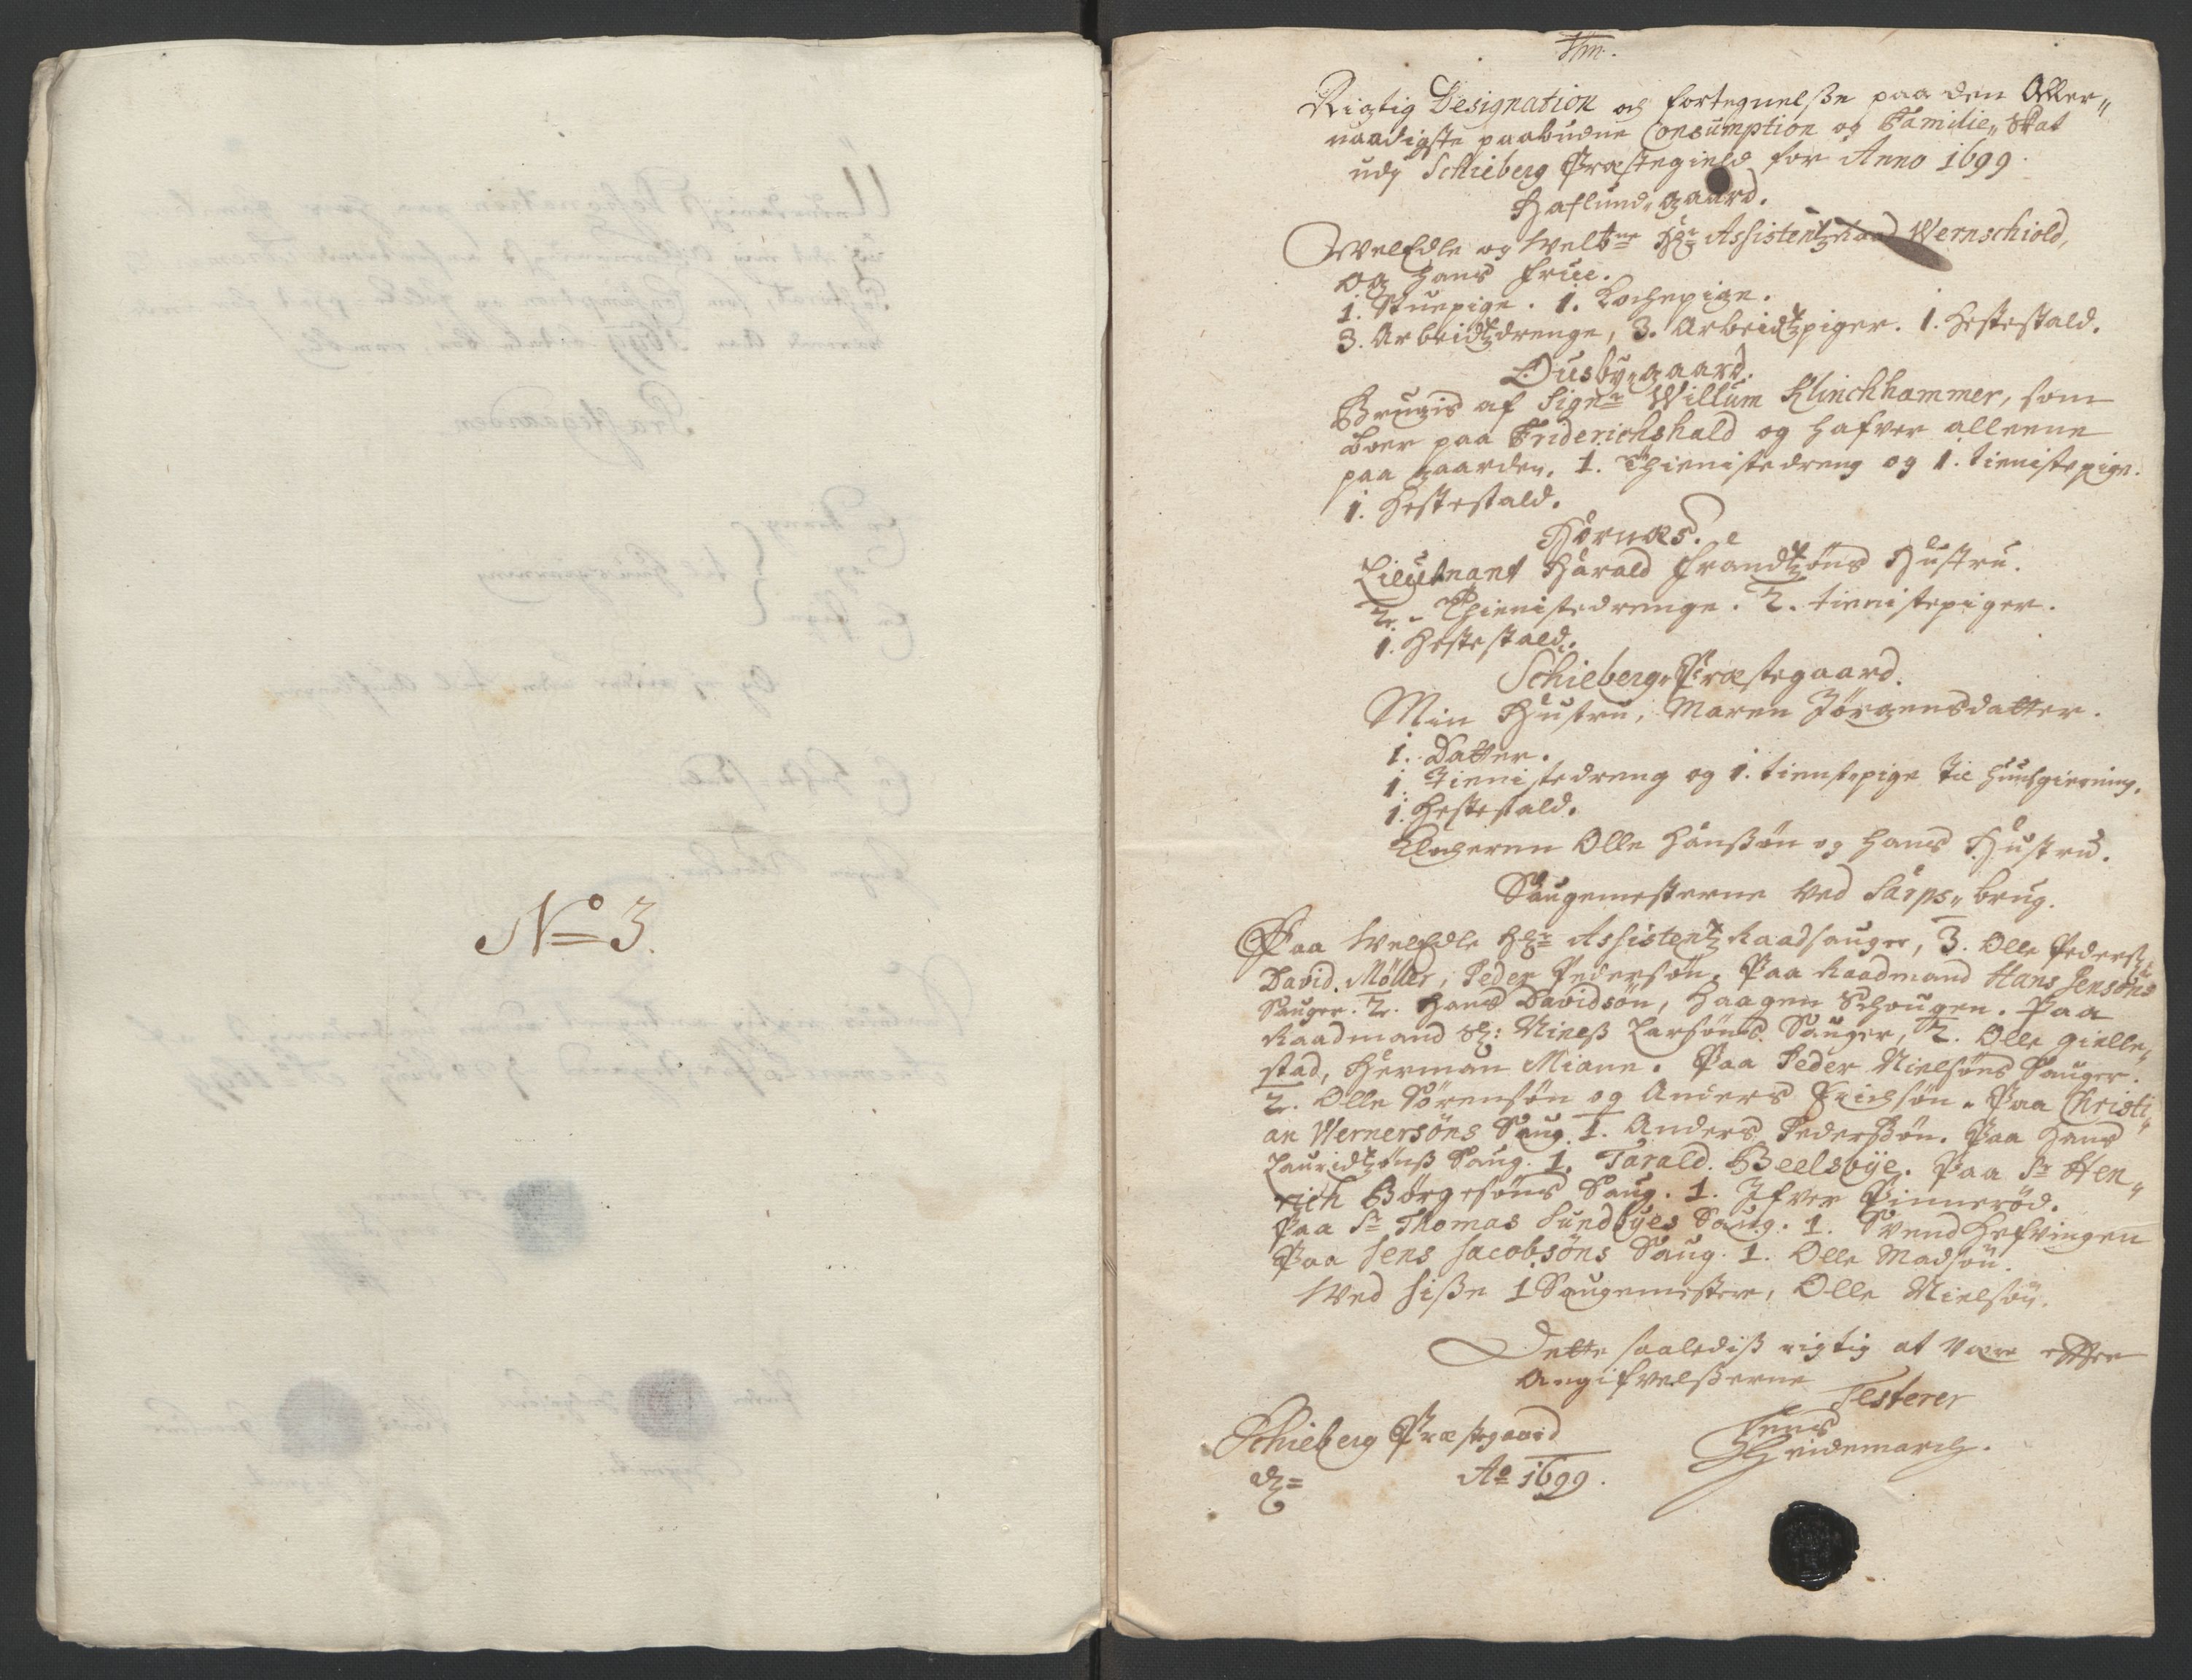 No 3.
Rigtig Designation og fortegnelsze paa den Aller„
naadigste paabudne Consumption og Familie„ Skat
udj Schieberg Præstegield for Anno 1699.
Haflund„gaard.
WelEdle og Welbne Hr Assistentz Raad Wernschiold,
og hans frue.
1. Stuepige. 1. Kochepige.
3. Arbeidtzdrenge, 3. Arbeidtzpiger. 1. Hestestald.
Ousby„gaard.
Brugis af Signr Willum Klinchhammer, som
boer paa Friderichshald og hafver alleene
paa gaarden. 1. Thienistedreng og 1. tienistepige.
1. Hestestald.
Hornæs.
Lieutnant Harald Frandtzøns Hustru.
2. Thienistedrenge. 2. tienistepiger.
1. Hestestald.
Schieberg„Præstegaard.
Min Hustru, Maren Jørgensdatter.
1. Datter.
1. Tienistedreng og 1. tienistepige til huusgierning.
1. Hestestald.
Klocheren Olle Hanszøn og hans Hustru.
Saugemesterne ved Sarps„brug.
Paa WelEdle Hr Assistentz Raadsauger, 3. Olle Peders:
David Møller, Peder Pedersøn. Paa Raadmand Hans Jensøns
Sauger. 2. Hans Davidsøn, Haagen Schougen. Paa
Raadmand Sl: Nielsz Larsøns Sauger, 2. Olle Gielle„
stad, Herman Miann. Paa Peder Nielsøns Sauger.
2. Olle Sørensøn og Anders Erichsøn. Paa Christi„
an Wernersøns Saug 1. Anders Pederszøn. Paa Hans
Lauridtzønsz Saug. 1. Tarald Beelsbye. Paa Sr Hen„
rich Børgesøns Saug. 1. Ifver Pinnerød.
Paa Sr Thomas Sundbyes Saug. 1. Svend Hefvingen
Paa Jens Jacobsøns Saug. 1. Olle Madsøn.
Wed Hisze 1 Saugemestere, Olle Nielsøn.
Dette saaledisz rigtig at være efter
Angifvelszerne
Testerer
Schieberg Præstegaard
Jens
Heidemarch.
Ao 1699.